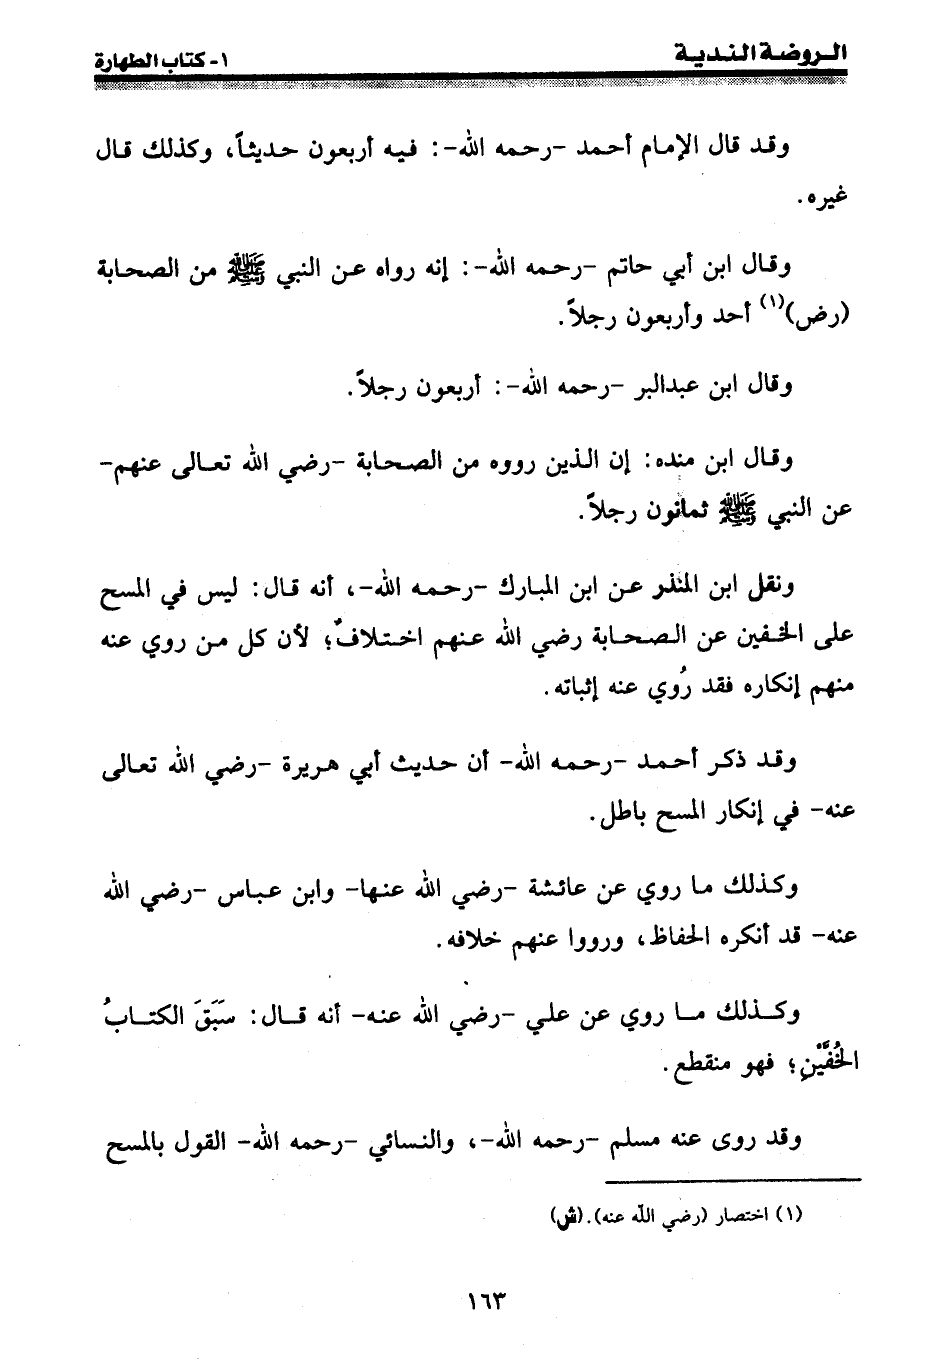 الروضة الندية
١- كتاب الطهارة
وقد قال الإمام أحمد -رحمه الله-: فيه أربعون حديثاً، وكذلك قال
غيره.
وقال ابن أبي حاتم -رحمه الله-: إنه رواه عن النبي ﷺ من الصحابة
(رض)(١) أحد وأربعون رجلاً.
وقال ابن عبدالبر -رحمه الله-: أربعون رجلاً.
وقال ابن منده: إن الذين رووه من الصحابة -رضي الله تعالى عنهم-
عن النبي ﷺ ثمانون رجلاً.
ونقل ابن المنذر عن ابن المبارك -رحمه الله-، أنه قال: ليس في المسح
على الخفين عن الصحابة رضي الله عنهم اختلافٌ؛ لأن كل من روي عنه
منهم إنكاره فقد رُوي عنه إثباته.
وقد ذكر أحمد -رحمه الله- أن حديث أبي هريرة -رضي الله تعالى
عنه- في إنكار المسح باطل.
وكذلك ما روي عن عائشة -رضي الله عنها- وابن عباس -رضي الله
عنه- قد أنكره الحفاظ، ورووا عنهم خلافه.
وكذلك ما روي عن علي -رضي الله عنه- أنه قال: سَبَقَ الكتابُ
الخُفَّيْنِ؛ فهو منقطع.
وقد روى عنه مسلم -رحمه الله-، والنسائي -رحمه الله- القول بالمسح
(١) اختصار (رضي الله عنه). (ش)
١٦٣